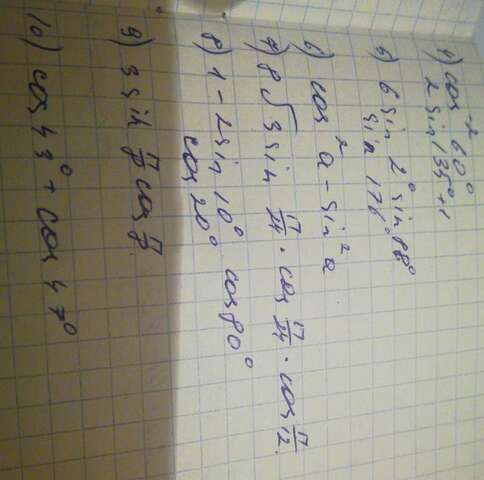 4) cos⁻² 60°
2 sin 135° + 1
5) 6 sin 2° sin 88°
sin 176°
6) cos² a - sin² a
7) 8 √3 sin π/24 · cos π/24 · cos π/12
8) 1 - 2 sin 10° cos 80°
cos 20°
9) 3 sin π/8 cos π/8
10) cos 43° + cos 47°